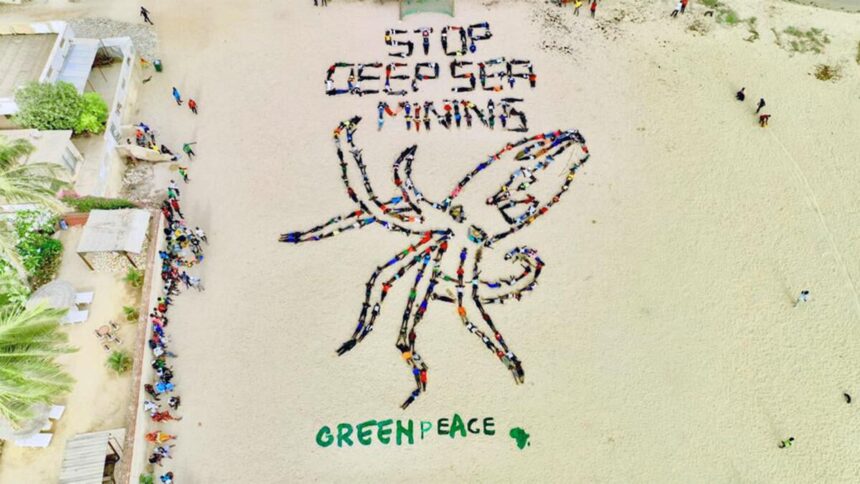 STOP
DEEP SEA
MINING
GREENPEACE